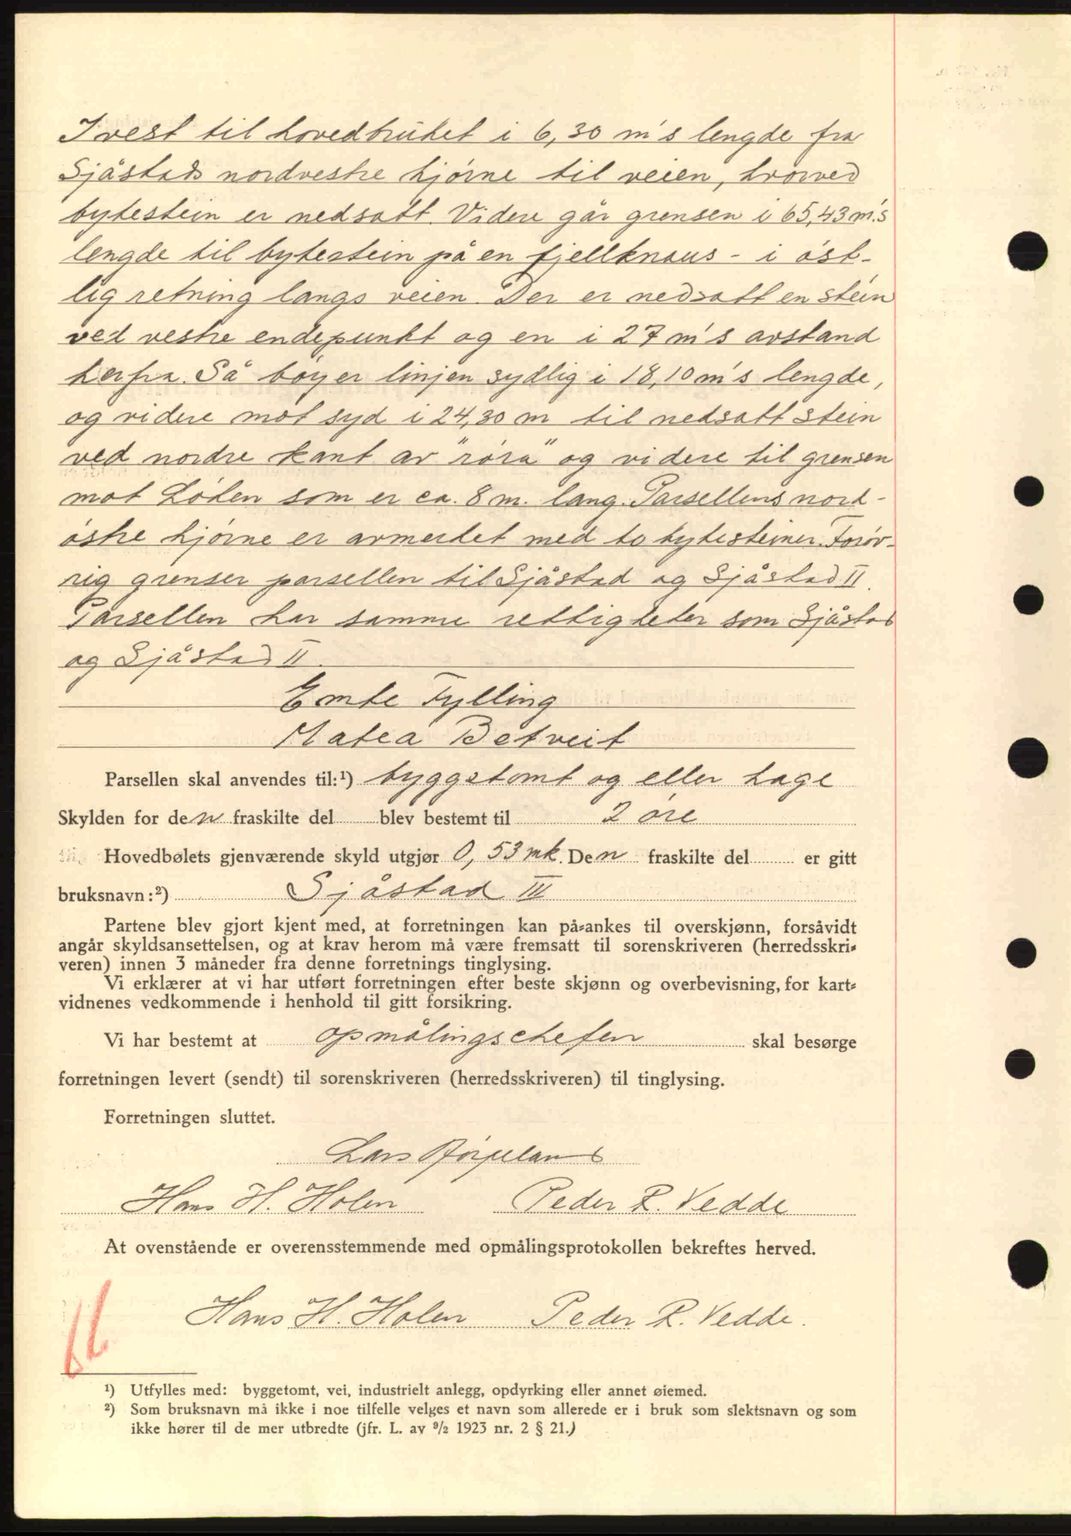 I vest til hovedbruket i 6,30 m's lengde fra
Sjåstads nordvestre hjørne til veien, hvorved
bytestein er nedsatt. Videre går grensen i 65,43 m's
lengde til bytestein på en fjellknaus - i øst-
lig retning langs veien. Der er nedsatt en stein
ved vestre endepunkt og en i 27 m's avstand
herfra. Så bøyer linjen sydlig i 18,10 m's lengde,
og videre mot syd i 24,30 m til nedsatt stein
ved nordre kant av "røra" og videre til grensen
mot Løten som er ca. 8 m. lang. Parsellens nord-
østre hjørne er avmerket med to bytesteiner. Forøv-
rig grenser parsellen til Sjåstad og Sjåstad II.
Parsellen har samme rettigheter som Sjåstad
og Sjåstad II.
Fylling
Matea Betveit
Parsellen skal anvendes til:¹) byggetomt og eller hage
Skylden for den fraskilte del blev bestemt til 2 øre
Hovedbølets gjenværende skyld utgjør 0,53 mk. Den fraskilte del er gitt
bruksnavn:²) Sjåstad III
Partene blev gjort kjent med, at forretningen kan på-ankes til overskjønn, forsåvidt
angår skyldsansettelsen, og at krav herom må være fremsatt til sorenskriveren (herredsskri-
veren) innen 3 måneder fra denne forretnings tinglysing.
Vi erklærer at vi har utført forretningen efter beste skjønn og overbevisning, for kart-
vidnenes vedkommende i henhold til gitt forsikring.
Vi har bestemt at opmålingschefen skal besørge
forretningen levert (sendt) til sorenskriveren (herredsskriveren) til tinglysing.
Forretningen sluttet.
Lars
Hans H. Holen Peder R. Vedde
At ovenstående er overensstemmende med opmålingsprotokollen bekreftes herved.
Hans H. Holen Peder R. Vedde.
¹) Utfylles med: byggetomt, vei, industrielt anlegg, opdyrking eller annet øiemed.
²) Som bruksnavn må ikke i noe tilfelle velges et navn som allerede er i bruk som slektsnavn og som
ikke hører til de mer utbredte (jfr. L. av 9/2 1923 nr. 2 § 21.)